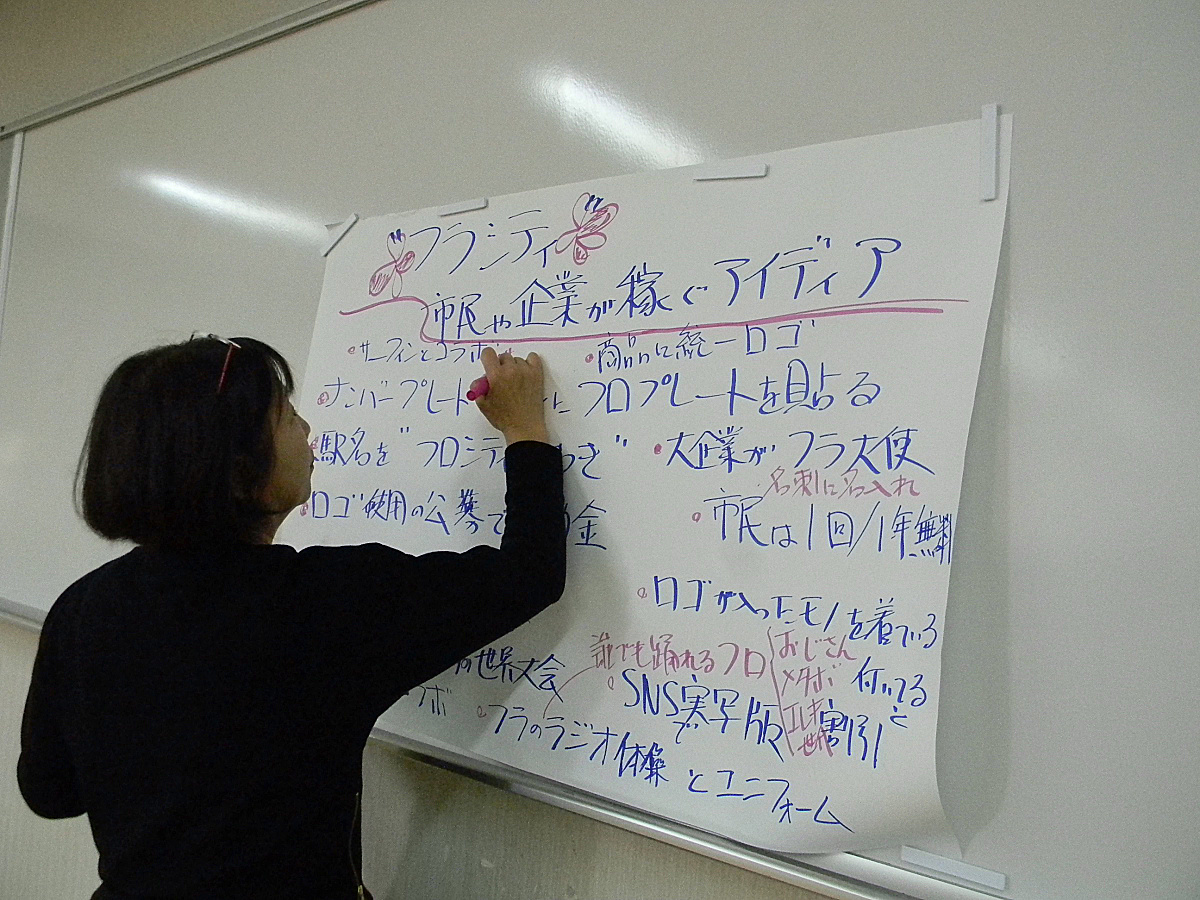 フラシティ
市民や企業が稼ぐアイディア
サーフィンとコラボ
商品に統一ロゴ
ナンバープレート に フロプレートを貼る
駅名を"フロシティ き"
大企業がフラ大使
名刺に名入れ
ロゴ使用の公募で 金
市民は1回/1年無料
ロゴが入ったモノを着ている
付いてると
割引
の世界大会
ボ
誰でも踊れるフロ
おじさん
メタボ
世代
SNSで実写版
フラのラジオ体操とユニフォーム